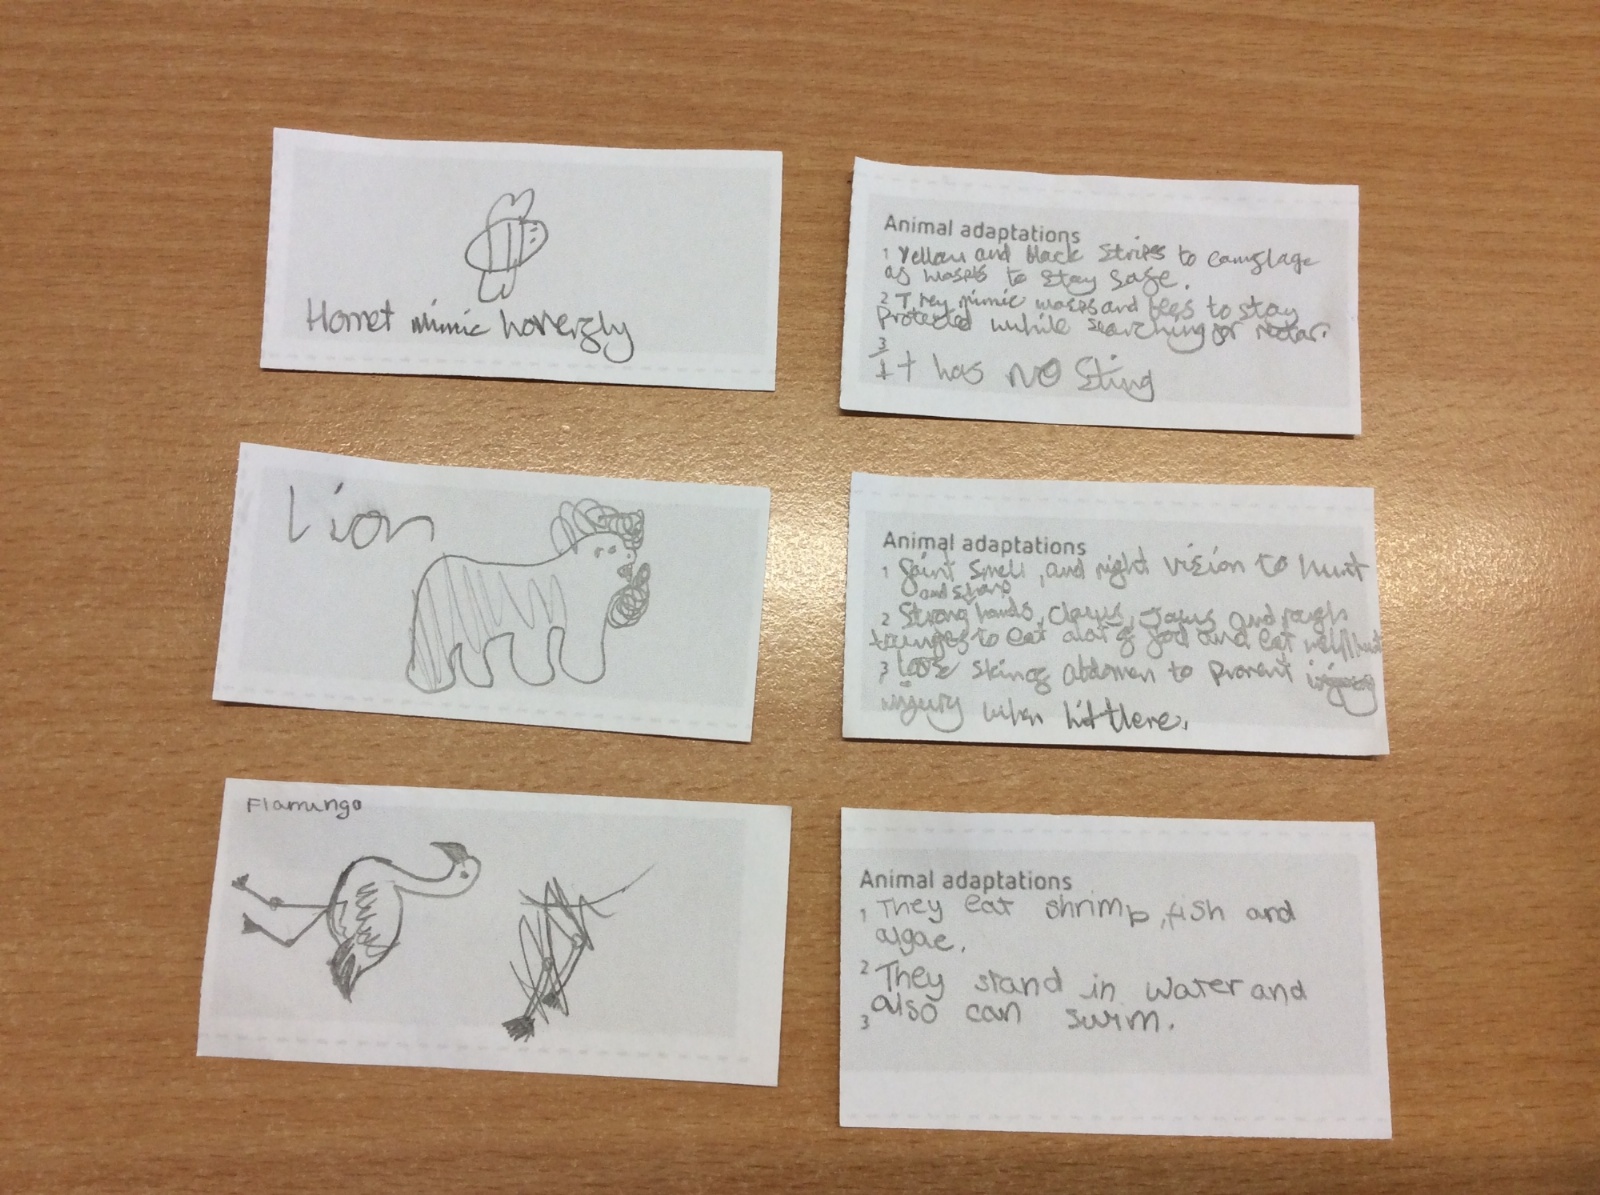 Hornet mimic hoverfly
Animal adaptations
1 Yellow and black Stripes to camflage
as wasps to stay safe.
2 They mimic wasps and bees to stay
protected while searching for nectar.
3
It has NO Sting
Lion
Animal adaptations
1 Faint smell, and night vision to hunt
and sharp
2 Strong hands, claws, Jaws and rough
to eat alot of food and eat well
3 loose skin of abdomen to prevent
injury when hit there.
Flamingo
Animal adaptations
1 They eat shrimp, fish and
algae.
2 They stand in water and
also can swim.
3